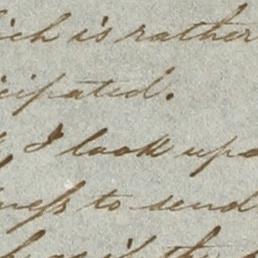 ich is rather
cipated.
I look upo
ness to send
as if the